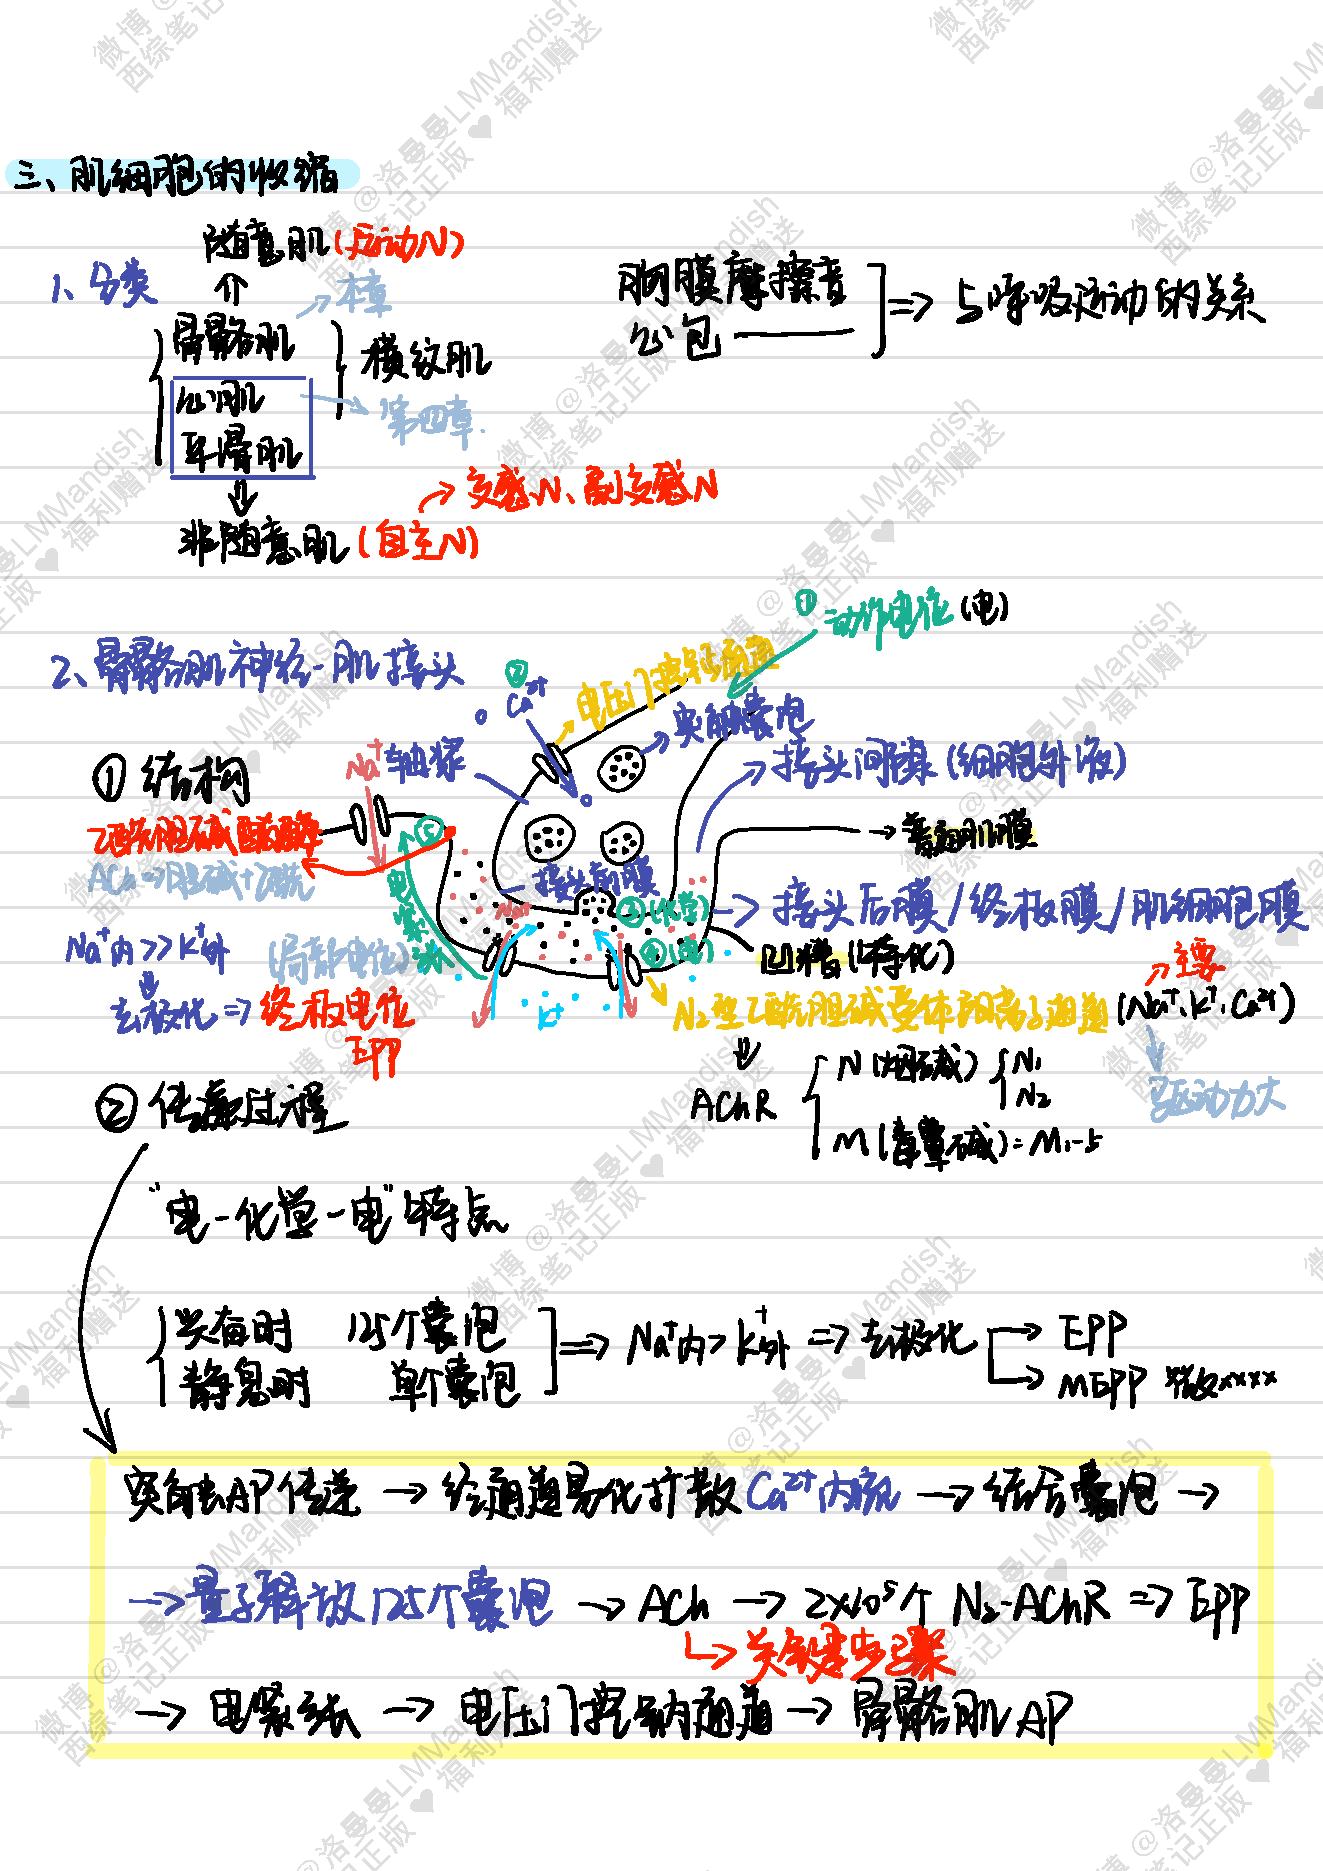 三、肌细胞的收缩
随意肌(运动N)
1、分类
本章
骨骼肌
横纹肌
心肌
第四章
平滑肌
胸膜摩擦音
心包
⇒ 与呼吸运动的关系
→ 交感N、副交感N
非随意肌(自主N)
① 动作电位(电)
2、骨骼肌神经-肌接头
② Ca²⁺
电压门控钙通道
突触囊泡
① 结构
Na⁺
轴浆
接头间隙(细胞外液)
乙酰胆碱酯酶
⑤
普通肌膜
ACh→胆碱+乙酰
电紧张
接头前膜
Na⁺
③(化学)
接头后膜/终板膜/肌细胞膜
Na⁺内>>K⁺外
(局部电位)
④(电)
凹槽(特化)
主要
去极化⇒终板电位
EPP
K⁺
N₂型乙酰胆碱受体阳离子通道(Na⁺、K⁺、Ca²⁺)
驱动力大
AChR
N(烟碱) N₁
N₂
M(毒蕈碱)=M₁₋₅
② 传递过程
"电-化学-电"特点
兴奋时 125个囊泡
静息时 单个囊泡
⇒ Na⁺内>K⁺外 ⇒ 去极化
→ EPP
→ MEPP 微
突触AP传递 → 经通道易化扩散 Ca²⁺内流 → 结合囊泡 →
→ 量子释放125个囊泡 → ACh → 2×10⁵个 N₂-AChR ⇒ EPP
↳ 关键步骤
→ 电紧张 → 电压门控钠通道 → 骨骼肌AP
微博@洛曼曼LMMandish
西综笔记正版♥福利赠送